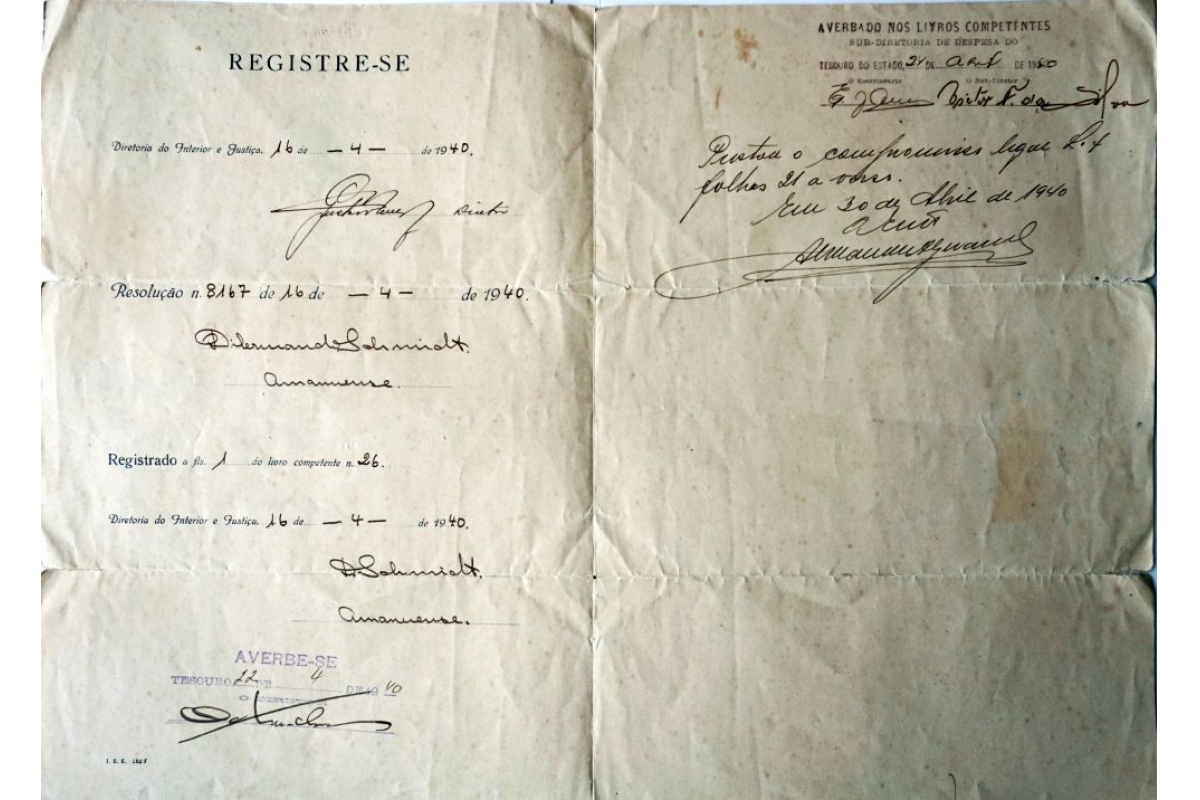 REGISTRE-SE
Diretoria do Interior e Justiça, 16 de — 4 — de 1940.
Diretor
Resolução n. 8167 de 16 de — 4 — de 1940.
Dilermando Schmidt.
Amanuense.
Registrado a fls. 1 do livro competente n. 26.
Diretoria do Interior e Justiça, 16 de — 4 — de 1940.
D. Schmidt.
Amanuense.
AVERBE-SE
TESOURO 22 DE 4 DE 1940
AVERBADO NOS LIVROS COMPETENTES
SUB-DIRETORIA DE DESPESA DO
TESOURO DO ESTADO, 24 DE Abril DE 1940
O Escriturario O Sub-Diretor
Victor N. da Silva
Prestou o compromisso legal L. 4
folhas 21 a verso.
Em 30 de Abril de 1940